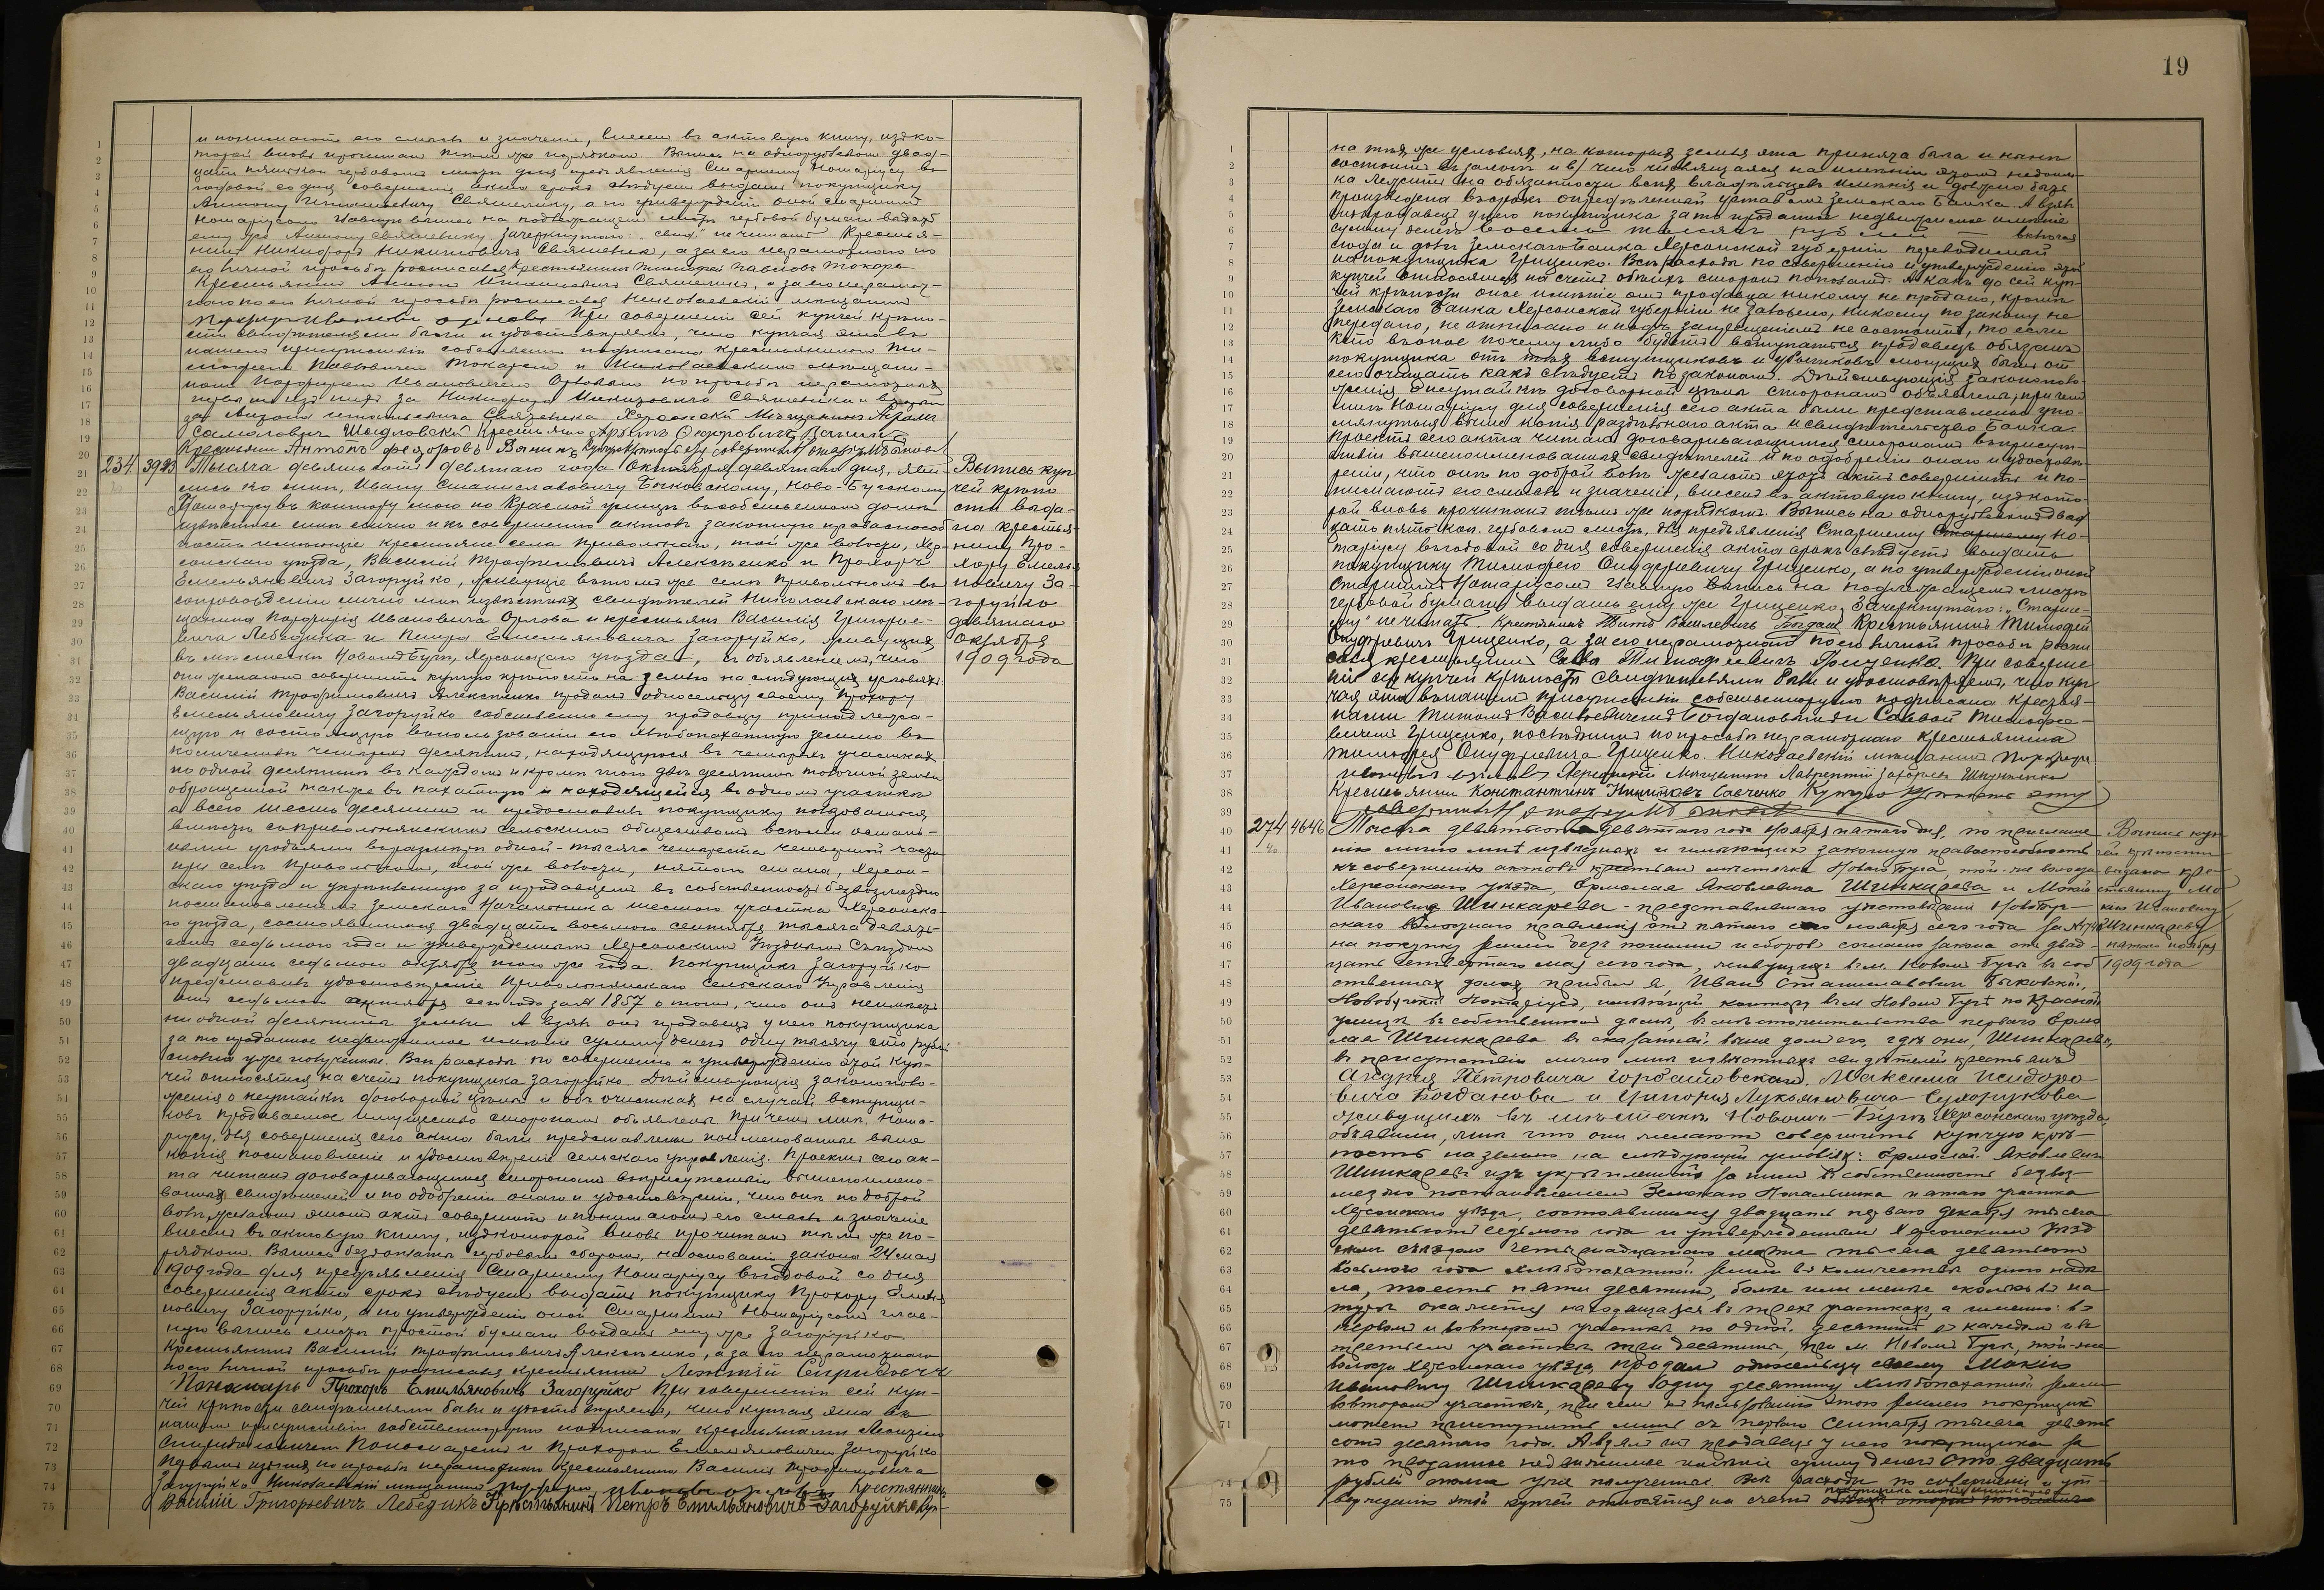 и понимаютъ его смыслъ и значеніе, внесенъ въ актовую книгу, изъ ко-
торой вновь прочитанъ тѣмъ же порядкомъ. Выпись на однорублевомъ двад-
цати пяти коп. гербовомъ листѣ для предъявленія Старшему Нотаріусу въ
годовой со дня совершенія акта срокъ слѣдуетъ выдать покупщику
Антону Свяшенику, а по утвержденіи оной Старшимъ
Нотаріусомъ главную выпись на подлежащемъ листѣ гербовой бумаги выдать
ему же Антону Свяшенику. Зачеркнутаго не читать. Крестья-
нинъ Никифоръ Свяшеникъ, а за его неграмотнаго по
его личной просьбѣ росписался крестьянинъ Тимофей Павловъ Токарь
Крестьянинъ Антонъ Свяшеникъ, а за его неграмот-
наго по его личной просьбѣ росписался Николаевскій мѣщанинъ
Порфирій Ивановъ Орловъ При совершеніи сей купчей крѣпо-
сти свидѣтелями были и удостовѣряемъ, что купчая эта въ
нашемъ присутствіи собственноручно подписана крестьяниномъ Ти-
мофеемъ Павловичемъ Токаремъ и Николаевскимъ мѣщани-
номъ Порфиріемъ Ивановичемъ Орловымъ по просьбѣ неграмотныхъ
первый изъ нихъ за Никифора Свяшеника и второй
за Антона Свяшеника. Херсонскій Мѣщанинъ Абрамъ
Самойловичъ Шидловскій Крестьянинъ
Крестьянинъ Антонъ Федоровъ Нотаріусъ Быковскій
234 3983 Тысяча девятьсотъ девятаго года Октября девятаго дня, яви-
лись ко мнѣ, Ивану Станиславовичу Быковскому, Ново-Бугскому
Нотаріусу въ контору мою по Красной улицѣ въ собственномъ домѣ
извѣстные мнѣ лично и къ совершенію актовъ законную правоспособ-
ность имѣющіе крестьяне села Привольнаго, той же волости, Хер-
сонскаго уѣзда, Василій Трофимовичъ Алексѣенко и Прохоръ
Емельяновичъ Загоруйко, живущіе въ томъ же селѣ Привольномъ въ
сопровожденіи лично мнѣ извѣстныхъ свидѣтелей Николаевскаго мѣ-
щанина Порфирія Ивановича Орлова и крестьянъ Василія Григорье-
вича Лебедика и Петра Емельяновича Загоруйко, живущихъ
въ мѣстечкѣ Новомъ Бугѣ, Херсонскаго уѣзда, съ объявленіемъ, что
они желаютъ совершить купчую крѣпость на землю на слѣдующихъ условіяхъ:
Василій Трофимовичъ Алексѣенко продалъ односельцу своему Прохору
Емельяновичу Загоруйко собственно ему продавцу принадлежа-
щую и состоящую въ пользованіи его хлѣбопахатную землю въ
количествѣ четырехъ десятинъ, находящуюся въ четырехъ участкахъ
по одной десятинѣ въ каждомъ и кромѣ того двѣ десятины толочной земли
обращенной также въ пахатную и находящейся въ одномъ участкѣ
а всего шесть десятинъ и предоставилъ покупщику пользоваться
вмѣстѣ съ Привольнянскимъ сельскимъ обществомъ всѣми осталь-
ными угодьями въ размѣрѣ одной-тысяча четыреста четвертой части
при селѣ Привольномъ, той же волости, пятаго стана, Херсон-
скаго уѣзда и укрѣпленную за продавцемъ въ собственность безвозмездно
постановленіемъ Земскаго Начальника шестого участка Херсонска-
го уѣзда, состоявшимся двадцать восьмого сентября тысяча девять-
сотъ седьмого года и утвержденнымъ Херсонскимъ Уѣзднымъ Съѣздомъ
двадцать седьмого октября того же года. Покупщикъ Загоруйко
представилъ удостовѣреніе Привольнянскаго Сельскаго Управленія
отъ седьмого октября сего года за № 1857 о томъ, что онъ не имѣетъ
ни одной десятины земли. А взялъ онъ продавецъ у него покупщика
за то проданное недвижимое имѣніе сумму денегъ одну тысячу сто рублей
сполна уже полученные. Всѣ расходы по совершенію и утвержденію этой куп-
чей относятся на счетъ покупщика Загоруйко. Дѣйствующія законополо-
женія о неутайкѣ договорной цѣны и объ очисткахъ на случай вступщи-
ковъ въ продаваемое имущество сторонамъ объявлены. При чемъ мнѣ, Нота-
ріусу, для совершенія сего акта были представлены поименованные выше
копія постановленія и удостовѣреніе сельскаго управленія. Проектъ сего ак-
та читанъ договаривающимся сторонамъ въ присутствіи вышепоимено-
ванныхъ свидѣтелей и по одобреніи онаго и удостовѣреніи, что они по доброй
волѣ желаютъ этотъ актъ совершить и понимаютъ его смыслъ и значеніе
внесенъ въ актовую книгу, изъ которой вновь прочитанъ тѣмъ же по-
рядкомъ. Выпись безъ оплаты гербовымъ сборомъ, на основаніи закона 24 мая
1909 года для предъявленія Старшему Нотаріусу въ годовой со дня
совершенія акта срокъ слѣдуетъ выдать покупщику Прохору Емелья-
новичу Загоруйко, а по утвержденіи оной Старшимъ Нотаріусомъ глав-
ную выпись листѣ простой бумаги выдать ему же Загоруйко.
Крестьянинъ Василій Трофимовичъ Алексѣенко, а за его неграмотнаго
по его личной просьбѣ росписался крестьянинъ Леонтій Спиридовичъ
Пономарь Прохоръ Емильяновичъ Загоруйко При совершеніи сей куп-
чей крѣпости свидѣтелями были и удостовѣряемъ, что купчая эта въ
нашемъ присутствіи собственноручно подписана крестьянами Леонтіемъ
Спиридоновичемъ Пономаремъ и Прохоромъ Емельяновичемъ Загоруйко
первымъ изъ нихъ по просьбѣ неграмотнаго крестьянина Василія Трофимовича
Загоруйко Николаевскій мѣщанинъ Порфирій Ивановъ Орловъ Крестянинъ
Василій Григорьевичъ Лебедикъ Крестьянинъ Петръ Емильяновичъ Загоруйко Куп-
Выпись куп
чей крѣпо
сти выда-
на крестья-
нину Про-
хору Емелья
новичу За-
горуйко
девятаго
Октября
1909 года
19
на тѣхъ же условіяхъ, на которыхъ земля эта принята была и нынѣ
состоитъ въ залогѣ и в) что числящаяся на имѣніи этомъ недоим-
ка лежитъ на обязанности всѣхъ владѣльцевъ имѣнія и должна быть
произведена въ срокъ опредѣленный уставомъ Земскаго Банка. А взялъ
онъ продавецъ у него покупщика за то проданное недвижимое имѣніе
сумму денегъ восемь тысячъ рублей включая
сюда и долгъ Земскаго Банка Херсонской губерніи переводимый
на покупщика Гриценко. Всѣ расходы по совершенію и утвержденію этой
купчей относятся на счетъ обѣихъ сторонъ пополамъ. А какъ до сей куп-
чей крѣпости оное имѣніе отъ продавца никому не продано, кромѣ
Земскаго Банка Херсонской губерніи не заложено, никому по закону не
передано, не отписано и подъ запрещеніемъ не состоитъ, то если
кто въ оное почему либо будетъ вступаться продавецъ обязанъ
покупщика отъ тѣхъ вступщиковъ и убытковъ могущихъ быть отъ
сего очищать какъ слѣдуетъ по законамъ. Дѣйствующія законополо-
женія о неутайкѣ договорной цѣны сторонамъ объявлены, при чемъ
мнѣ Нотаріусу для совершенія сего акта были представлены упо-
мянутыя выше копія раздѣльнаго акта и свидѣтельство Банка.
Проектъ сего акта читанъ договаривающимся сторонамъ въ присут-
ствіи вышепоименованныхъ свидѣтелей и по одобреніи онаго и удостовѣ-
реніи, что они по доброй волѣ желаютъ этотъ актъ совершить и по-
нимаютъ его смыслъ и значеніе, внесенъ въ актовую книгу, изъ кото-
рой вновь прочитанъ тѣмъ же порядкомъ. Выпись на однорублевомъ двад
цать пять коп. гербовомъ листѣ для предъявленія Старшему Старшему Но-
таріусу въ годовой со дня совершенія акта срокъ слѣдуетъ выдать
покупщику Тимофею Онуфріевичу Гриценко, а по утвержденіи оной
Старшимъ Нотаріусомъ главную выпись на подлежащемъ листѣ
гербовой бумаги выдать ему же Гриценко. Зачеркнутаго: „Старше-
му" не читать. Крестьянинъ Титъ Василевичъ Богданъ Крестьянинъ Тимофей
Онуфріевичъ Гриценко, а за его неграмотнаго по его личной просьбѣ роспи
сался крестьянинъ Савва Тимофеевичъ Гриценко. При соверше
ніи сей купчей крѣпости свидѣтелями были и удостовѣряемъ, что куп
чая эта въ нашемъ присутствіи собственноручно подписана крестья-
нами Титомъ Васильевичемъ Богдановымъ и Саввой Тимофее-
вичемъ Гриценко, послѣднимъ по просьбѣ неграмотнаго крестьянина
Тимофея Онуфріевича Гриценко. Николаевскій мѣщанинъ Порфирій
Ивановъ Орловъ Херсонскій Мѣщанинъ Лаврентій
Крестьянинъ Константинъ Савченко Купчую крѣпость эту
совершилъ Нотаріусъ Быковскій
274 4646 Тысяча девятьсотъ девятаго года Ноября пятаго дня, по приглаше
нію лично мнѣ извѣстныхъ и имѣющихъ законную правоспособность
къ совершенію актовъ крестьянъ мѣстечка Новаго Буга, той-же волости
Херсонскаго уѣзда, Ермолая Яковлевича Шинкарева и Мокія
Ивановича Шинкарева - представившаго удостовѣреніе Новобуг-
скаго волостнаго правленія отъ пятаго сего ноября сего года за №
на покупку земли безъ пошлинъ и сборовъ согласно закона отъ двад-
цать четвертаго мая сего года, живущихъ въ м. Новомъ Бугѣ въ соб
ственныхъ домахъ прибылъ я, Иванъ Станиславовичъ Быковскій,
Новобугскій Нотаріусъ, имѣющій контору въ м. Новомъ Бугѣ по Красной
улицѣ въ собственномъ домѣ, въ мѣстожительство перваго Ермо
лая Шинкарева въ сказанный выше домъ его, гдѣ они, Шинкаревы,
въ присутствіи лично мнѣ извѣстныхъ свидѣтелей крестьянъ
Андрея Петровича Горбатовскаго, Максима Исидоро
вича Богданова и Григорія Лукьяновича Сухорукова
живущихъ въ мѣстечкѣ Новомъ-Бугѣ Херсонскаго уѣзда,
объявили мнѣ что они желаютъ совершить купчую крѣ-
пость на землю на слѣдующихъ условіяхъ: Ермолай Яковлевичъ
Шинкаревъ изъ укрѣпленной за нимъ въ собственность безвоз-
мездно постановленіемъ Земскаго Начальника пятаго участка
Херсонскаго уѣзда, состоявшимся двадцать перваго декабря тысяча
девятьсотъ седьмого года и утвержденнымъ Херсонскимъ Уѣзд
нымъ Съѣздомъ четырнадцатаго марта тысяча девятьсотъ
восьмого года хлѣбопахатной земли въ количествѣ одного надѣ
ла, то есть пяти десятинъ, болѣе или менѣе сколько въ на
турѣ окажется находящагося въ трехъ участкахъ, а именно: въ
первомъ и во второмъ участкѣ по одной десятинѣ въ каждомъ и въ
третьемъ участкѣ три десятины, при м. Новомъ Бугѣ, той-же
волости Херсонскаго уѣзда, продалъ односельцу своему Мокію
Ивановичу Шинкареву одну десятину хлѣбопахатной земли
во второмъ участкѣ, при чемъ къ пользованію этою землею покупщикъ
можетъ приступить лишь съ перваго Сентября тысяча девять
сотъ десятаго года. А взялъ онъ продавецъ у него покупщика за
то проданное недвижимое имѣніе сумму денегъ сто двадцать
рублей сполна уже полученныя. Всѣ расходы по совершенію и ут-
покупщика Мокія Шинкарева
вержденію этой купчей относятся на счетъ обѣихъ сторонъ пополамъ
Выпись куп-
чей крѣпости
выдана кре-
стьянину Мо
кію Ивановичу
Шинкареву
пятаго ноября
1909 года